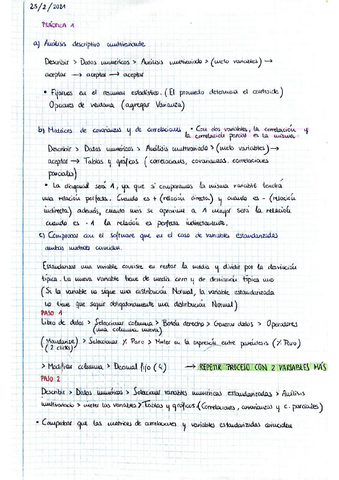 25/2/2021
PRÁCTICA 1
a) Análisis descriptivo multivariante
Describir > Datos numéricos > Análisis multivariado > (meto variables) →
aceptar → aceptar → aceptar
• Fijarnos en el resumen estadístico. (El promedio determina el centroide)
Opciones de ventana (agregar Varianza)
b) Matrices de covarianzas y de correlaciones • Con dos variables, la correlación y
la correlación parcial es la misma.
Describir > Datos numéricos > Análisis multivariado > (meto variables) →
aceptar → Tablas y gráficos (correlaciones, covarianzas, correlaciones
parciales)
• La diagonal será 1, ya que si comparamos la misma variable tendrá
una relación perfecta. Cuando es + (relación directa) y cuando es - (relación
indirecta) además, cuanto más se aproxime a 1 mayor será la relación
cuando es -1 la relación es perfecta indirectamente.
c) Comprobar con el software que en el caso de variables estandarizadas
ambas matrices coinciden.
Estandarizar una variable consiste en restar la media y dividir por la desviación
típica. La nueva variable tiene de media cero y de desviación típica uno
(Si la variable no sigue una distribución Normal, la variable estandarizada
no tiene que seguir obligatoriamente una distribución Normal)
PASO 1
Libro de datos > Seleccionar columna > Botón derecho > Generar datos > Operadores
(una columna nueva)
(Standardize) > Seleccionar % Paro > Meter en la expresión entre paréntesis (% Paro)
(2 clicks)
> Modificar columna > Decimal fijo (4) → REPETIR PROCESO CON 2 VARIABLES MÁS
PASO 2
Describir > Datos numéricos > Seleccionar variables numéricas estandarizadas > Análisis
multivariado > meter las variables > Tablas y gráficos (Correlaciones, covarianzas y c. parciales)
• Comprobar que las matrices de correlaciones y variables estandarizadas coinciden